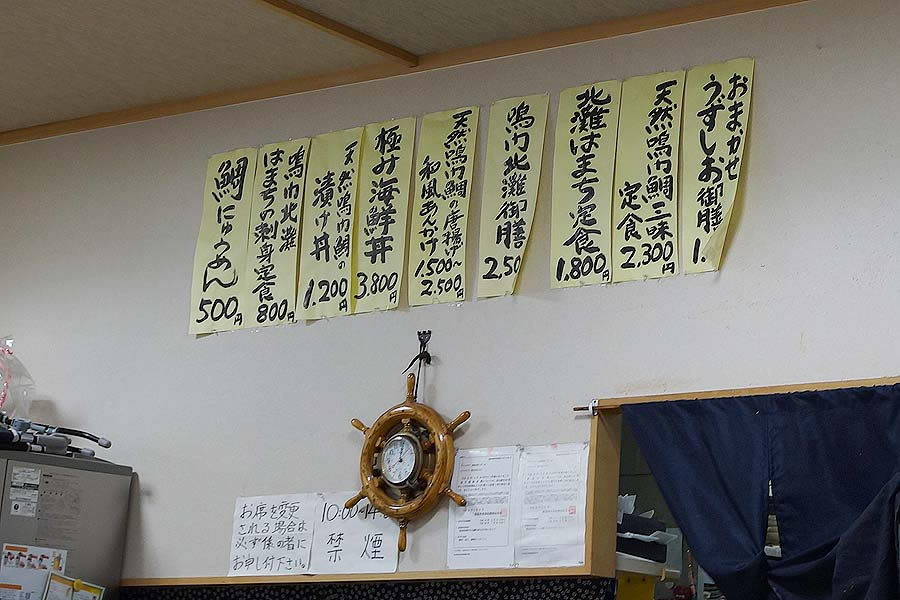 おまかせ
うずしお御膳
1.
天然鳴門鯛三昧
定食
2,300円
北灘はまち定食
1,800円
鳴門北灘御膳
2.50
天然鳴門鯛の唐揚げ
和風あんかけ
1.500〜
2.500円
極み海鮮丼
3.800円
天然鳴門鯛の
漬け丼
1.200円
鳴門北灘
はまちの刺身定食
800円
鯛にゅうめん
500円
お席を変更
される場合は
必ず係の者に
お申し付下さい。
10:00-14:
禁煙